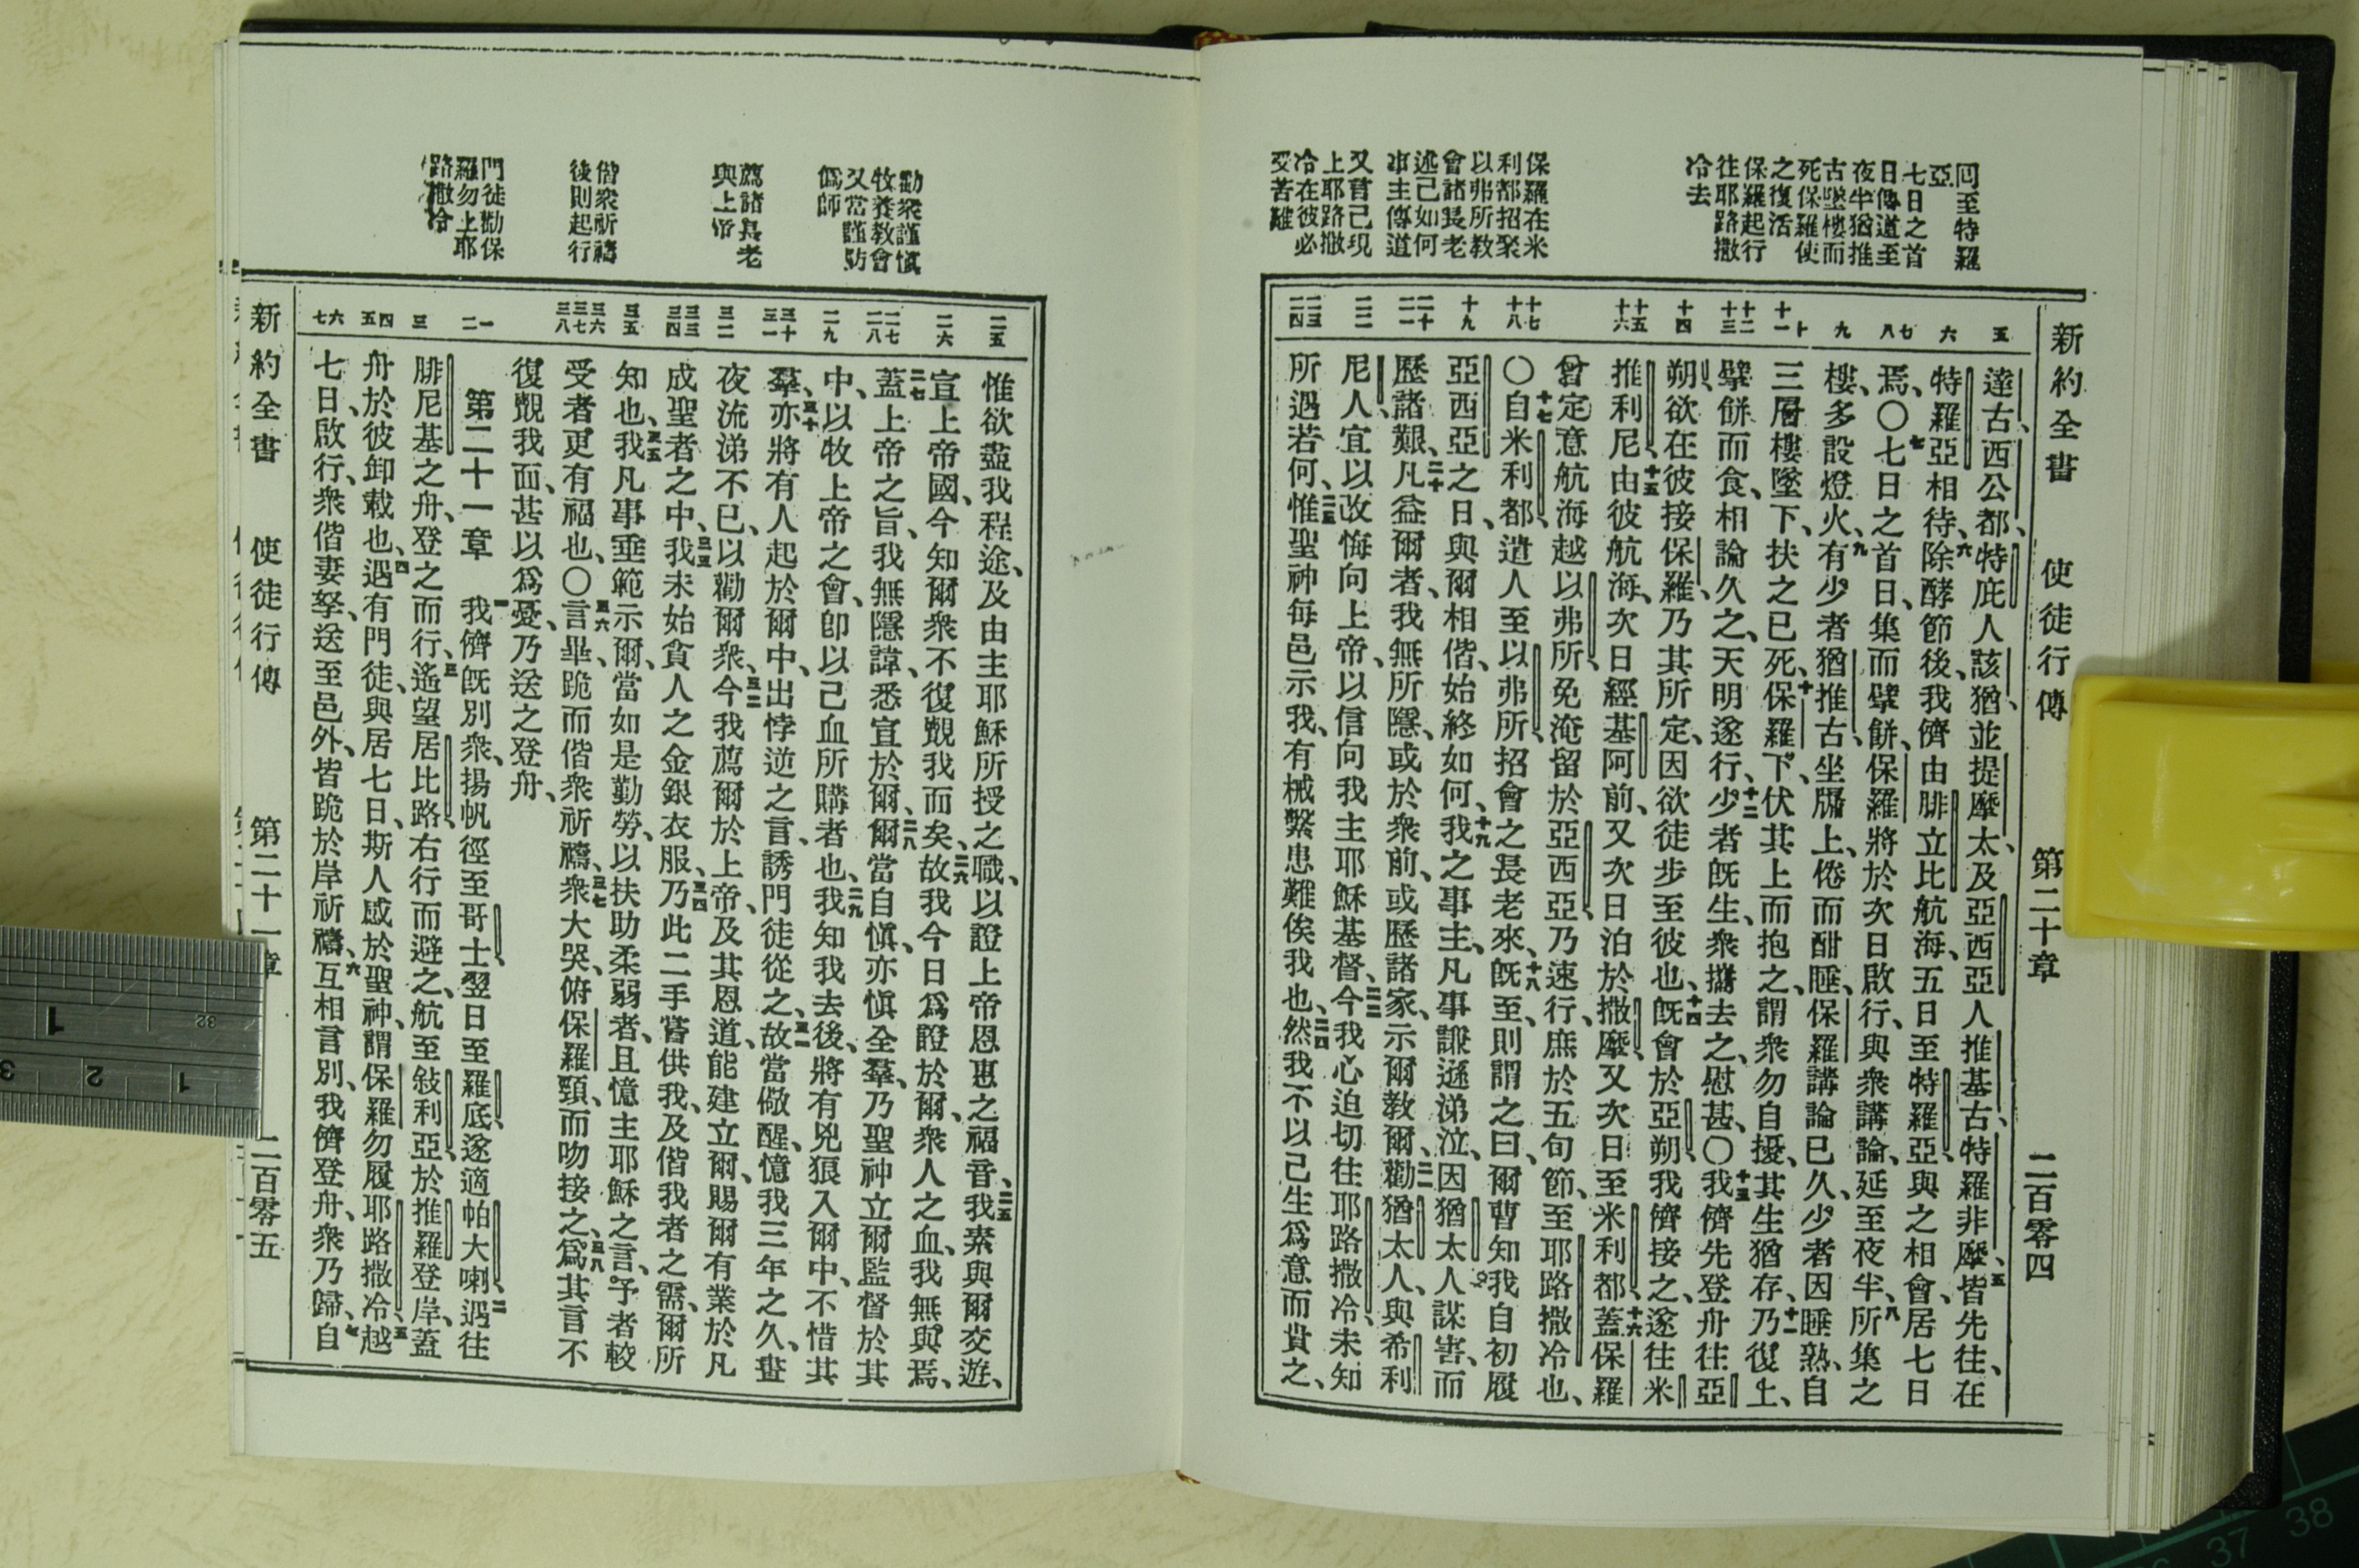 新約全書 使徒行傳 第二十章 二百零四
回至特羅
亞
七日之首
日傳道至
夜半猶推
古墜樓而
死保羅使
之復活
保羅起行
往耶路撒
冷去
保羅在米
利都招聚
以弗所教
會諸長老
述己如何
事主傳道
又言己現
上耶路撒
冷在彼必
受苦難
五
六
七
八
九
十
十一
十二
十三
十四
十五
十六
十七
十八
十九
二十
二一
二二
二三
二四
達古、西公都、特庇人該猶、並提摩太、及亞西亞人推基古、特羅非摩、五皆先往、在
特羅亞相待、六除酵節後、我儕由腓立比航海、五日至特羅亞、與之相會、居七日
焉、〇七七日之首日、集而擘餅、保羅將於次日啟行、與衆講論、延至夜半、八所集之
樓、多設燈火、九有少者猶推古、坐牖上、倦而酣睡、保羅講論已久、少者因睡熟、自
三層樓墜下、扶之已死、十保羅下、伏其上而抱之、謂衆勿自擾、其生猶存、十一乃復上、
擘餅而食、相論久之、天明遂行、十二少者旣生、衆攜去之、慰甚、〇十三我儕先登舟往亞
朔、欲在彼接保羅、乃其所定、因欲徒步至彼也、十四旣會於亞朔、我儕接之、遂往米
推利尼、十五由彼航海、次日經基阿前、又次日泊於撒摩、又次日至米利都、十六蓋保羅
曾定意航海越以弗所、免淹留於亞西亞、乃速行、庶於五旬節、至耶路撒冷也、
〇十七自米利都、遣人至以弗所、招會之長老來、十八旣至、則謂之曰、爾曹知我自初履
亞西亞之日、與爾相偕、始終如何、十九我之事主、凡事謙遜涕泣、因猶太人謀害、而
歷諸艱、二十凡益爾者、我無所隱、或於衆前、或歷諸家、示爾教爾、二一勸猶太人、與希利
尼人、宜以改悔向上帝、以信向我主耶穌基督、二二今我心迫切往耶路撒冷、未知
所遇若何、二三惟聖神每邑示我、有械繫患難俟我也、二四然我不以己生爲意而貴之、
勸衆謹愼
牧養教會
又當謹防
僞師
薦諸長老
與上帝
偕衆祈禱
後則起行
門徒勸保
羅勿上耶
路撒冷
二五
二六
二七
二八
二九
三十
三一
三二
三三
三四
三五
三六
三七
三八
一
二
三
四
五
六
七
惟欲盡我程途、及由主耶穌所授之職、以證上帝恩惠之福音、二五我素與爾交遊、
宣上帝國、今知爾衆不復覿我面矣、二六故我今日爲證於爾、衆人之血、我無與焉、
二七蓋上帝之旨、我無隱諱、悉宣於爾、二八爾當自愼、亦愼全羣、乃聖神立爾監督於其
中、以牧上帝之會、卽以己血所購者也、二九我知我去後、將有兇狼入爾中、不惜其
羣、三十亦將有人起於爾中、出悖逆之言、誘門徒從之、三一故當儆醒、憶我三年之久、晝
夜流涕不已、以勸爾衆、三二今我薦爾於上帝、及其恩道、能建立爾、賜爾有業於凡
成聖者之中、三三我未始貪人之金銀衣服、三四乃此二手嘗供我、及偕我者之需、爾所
知也、三五我凡事垂範示爾、當如是勤勞、以扶助柔弱者、且憶主耶穌之言、予者較
受者更有福也、〇三六言畢、跪而偕衆祈禱、三七衆大哭、俯保羅頸、而吻接之、三八爲其言不
復覿我面、甚以爲憂、乃送之登舟、
第二十一章 一我儕旣別衆、揚帆徑至哥士、翌日至羅底、遂適帕大喇、二遇往
腓尼基之舟、登之而行、三遙望居比路、右行而避之、航至敍利亞、於推羅登岸、蓋
舟於彼卸載也、四遇有門徒、與居七日、斯人感於聖神、謂保羅勿履耶路撒冷、五越
七日、啟行、衆偕妻孥、送至邑外、皆跪於岸祈禱、六互相言別、我儕登舟、衆乃歸、七自
新約全書 使徒行傳 第二十一章 二百零五
1
32
3 2 1
37 38